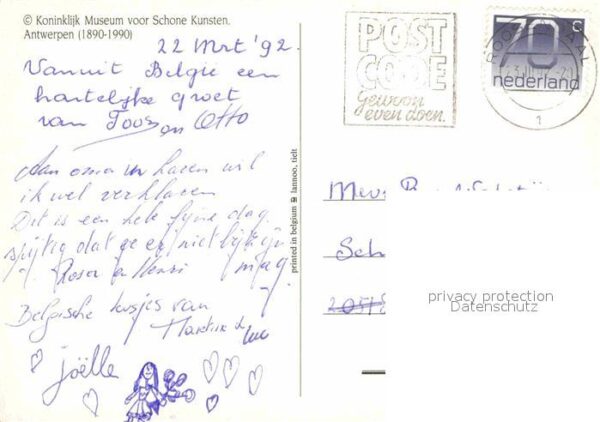 © Koninklijk Museum voor Schone Kunsten.
Antwerpen (1890-1990)
22 Mrt '92
Vanuit België een
hartelijke groet
van Toos en Otto
Aan oma
ik wel verklaren
Dit is een hele fijne dag.
spijtig dat ge er niet bij
mag.
Belgische kusjes van
Martine
Luc
joëlle
printed in belgium lannoo, tielt
POST
CODE
Gewoon
even doen.
70 c
nederland
ROOSENDAAL
1
Mev.
Sch
privacy protection
Datenschutz